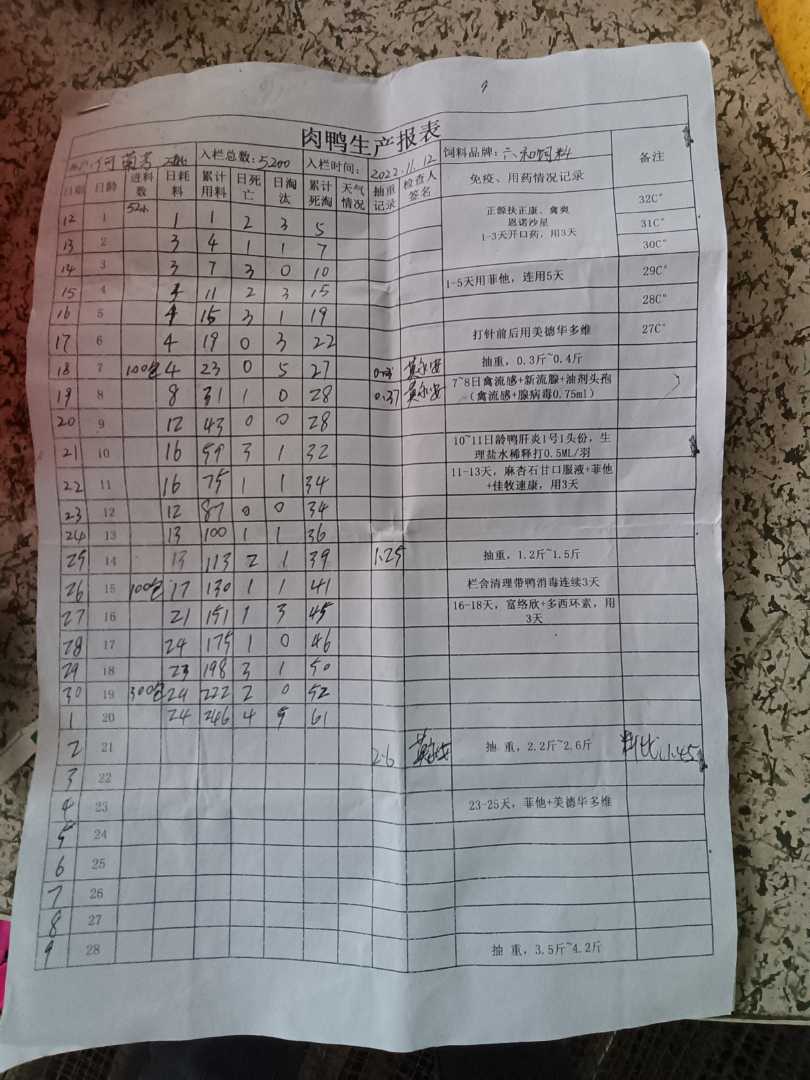 肉鸭生产报表
入栏总数:5200 入栏时间:2022.11.12 饲料品牌:六和饲料 备注
日期 日龄 进料数 日耗料 累计用料 日死亡 日淘汰 累计死淘 天气情况 抽重记录 检查人签名 免疫、用药情况记录
12 1 52小 1 1 2 3 5 正源扶正康、禽爽 恩诺沙星 1-3天开口药,用3天 32C°
31C°
13 2 3 4 1 1 7 30C°
14 3 3 7 3 0 10 1-5天用菲他,连用5天 29C°
15 4 4 11 2 3 15 28C°
16 5 4 15 3 1 19
17 6 4 19 0 3 22 打针前后用美德华多维 27C°
18 7 100包 4 23 0 5 27 抽重,0.3斤~0.4斤
19 8 8 31 1 0 28 0.37 7~8日禽流感+新流腺+油剂头孢(禽流感+腺病毒0.75ml)
20 9 12 43 0 0 28
21 10 16 59 3 1 32 10~11日龄鸭肝炎1号1头份,生理盐水稀释打0.5ML/羽
22 11 16 75 1 1 34 11-13天,麻杏石甘口服液+菲他+佳牧速康,用3天
23 12 12 87 0 0 34
24 13 13 100 1 1 36
25 14 13 113 2 1 39 1.25 抽重,1.2斤~1.5斤
26 15 100包 17 130 1 1 41 栏舍清理带鸭消毒连续3天
27 16 21 151 1 3 45 16-18天,富络欣+多西环素,用3天
28 17 24 175 1 0 46
29 18 23 198 3 1 50
30 19 300包 24 222 2 0 52
1 20 24 246 4 5 61
2 21 2.6 抽 重,2.2斤~2.6斤 料比1.45
3 22
4 23 23-25天,菲他+美德华多维
5 24
6 25
7 26
8 27
9 28 抽 重,3.5斤~4.2斤